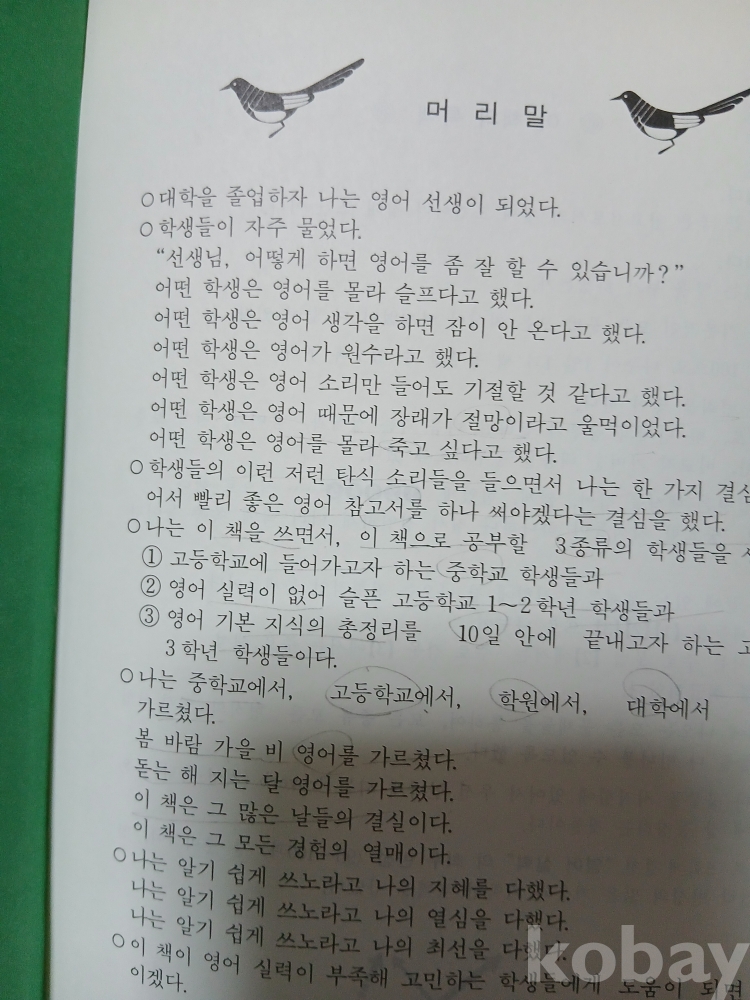 머 리 말
○대학을 졸업하자 나는 영어 선생이 되었다.
○학생들이 자주 물었다.
“선생님, 어떻게 하면 영어를 좀 잘 할 수 있습니까?”
어떤 학생은 영어를 몰라 슬프다고 했다.
어떤 학생은 영어 생각을 하면 잠이 안 온다고 했다.
어떤 학생은 영어가 원수라고 했다.
어떤 학생은 영어 소리만 들어도 기절할 것 같다고 했다.
어떤 학생은 영어 때문에 장래가 절망이라고 울먹이었다.
어떤 학생은 영어를 몰라 죽고 싶다고 했다.
○학생들의 이런 저런 탄식 소리들을 들으면서 나는 한 가지
어서 빨리 좋은 영어 참고서를 하나 써야겠다는 결심을 했다.
○나는 이 책을 쓰면서, 이 책으로 공부할 3종류의 학생들을
① 고등학교에 들어가고자 하는 중학교 학생들과
② 영어 실력이 없어 슬픈 고등학교 1～2학년 학생들과
③ 영어 기본 지식의 총정리를 10일 안에 끝내고자 하는
3학년 학생들이다.
○나는 중학교에서, 고등학교에서, 학원에서, 대학에서
가르쳤다.
봄 바람 가을 비 영어를 가르쳤다.
돋는 해 지는 달 영어를 가르쳤다.
이 책은 그 많은 날들의 결실이다.
이 책은 그 모든 경험의 열매이다.
○나는 알기 쉽게 쓰노라고 나의 지혜를 다했다.
나는 알기 쉽게 쓰노라고 나의 열심을 다했다.
나는 알기 쉽게 쓰노라고 나의 최선을 다했다.
○이 책이 영어 실력이 부족해 고민하는 학생들에게 도움이 되면
이겠다.
kobay